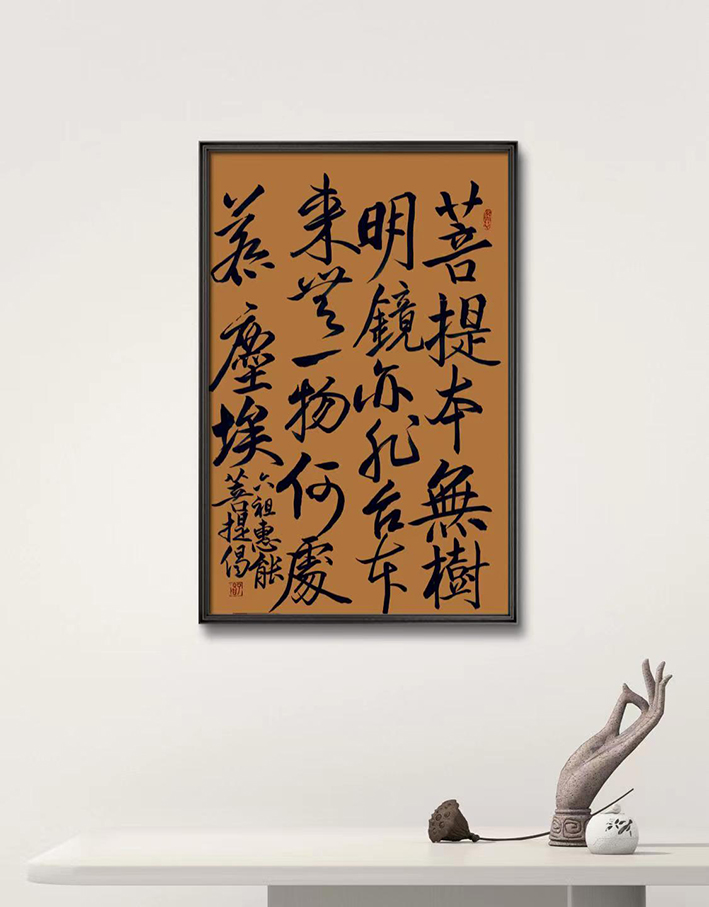 菩提本無樹
明鏡亦非台本
来無一物何處
惹塵埃
六祖惠能
菩提偈